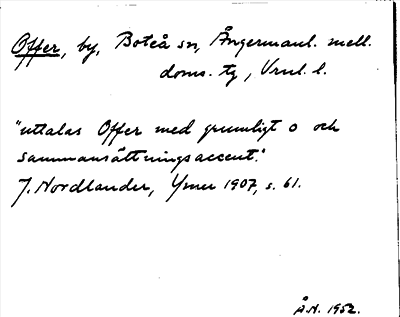 Offer, by, Boteå sn, Ångermanl. mell.
doms. tg, Vrnl. l.
"uttalas Offer med grumligt o och
sammansättningsaccent."
J. Nordlander, Ymer 1907, s. 61.
Å.N. 1952.